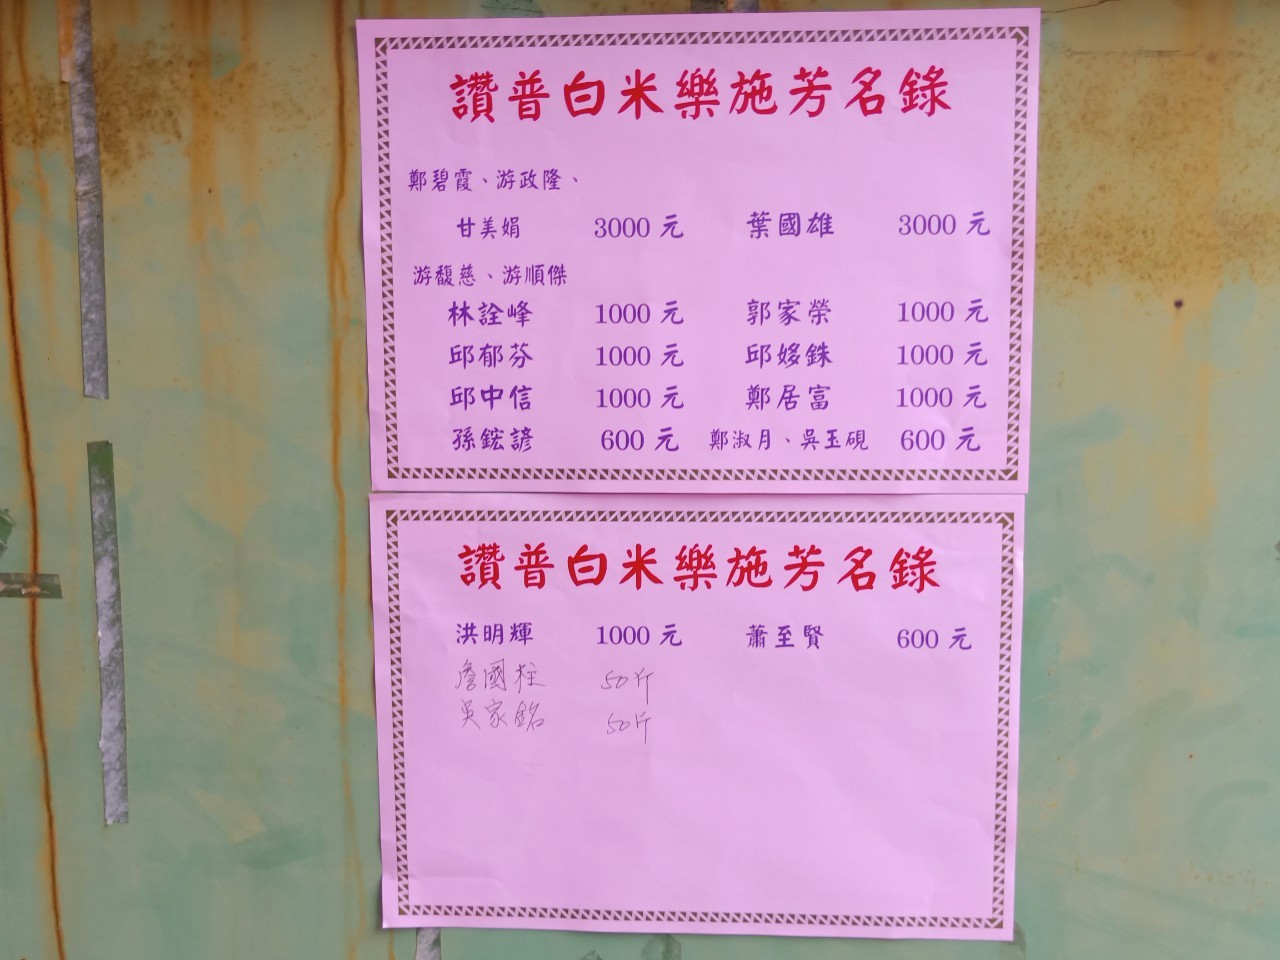 讚普白米樂施芳名錄
鄭碧霞、游政隆、
甘美娟 3000 元 葉國雄 3000 元
游馥慈、游順傑
林詮峰 1000 元 郭家榮 1000 元
邱郁芬 1000 元 邱姼銖 1000 元
邱中信 1000 元 鄭居富 1000 元
孫鋐諺 600 元 鄭淑月、吳玉硯 600 元
讚普白米樂施芳名錄
洪明輝 1000 元 蕭至賢 600 元
詹國柱 50斤
吳家銘 50斤